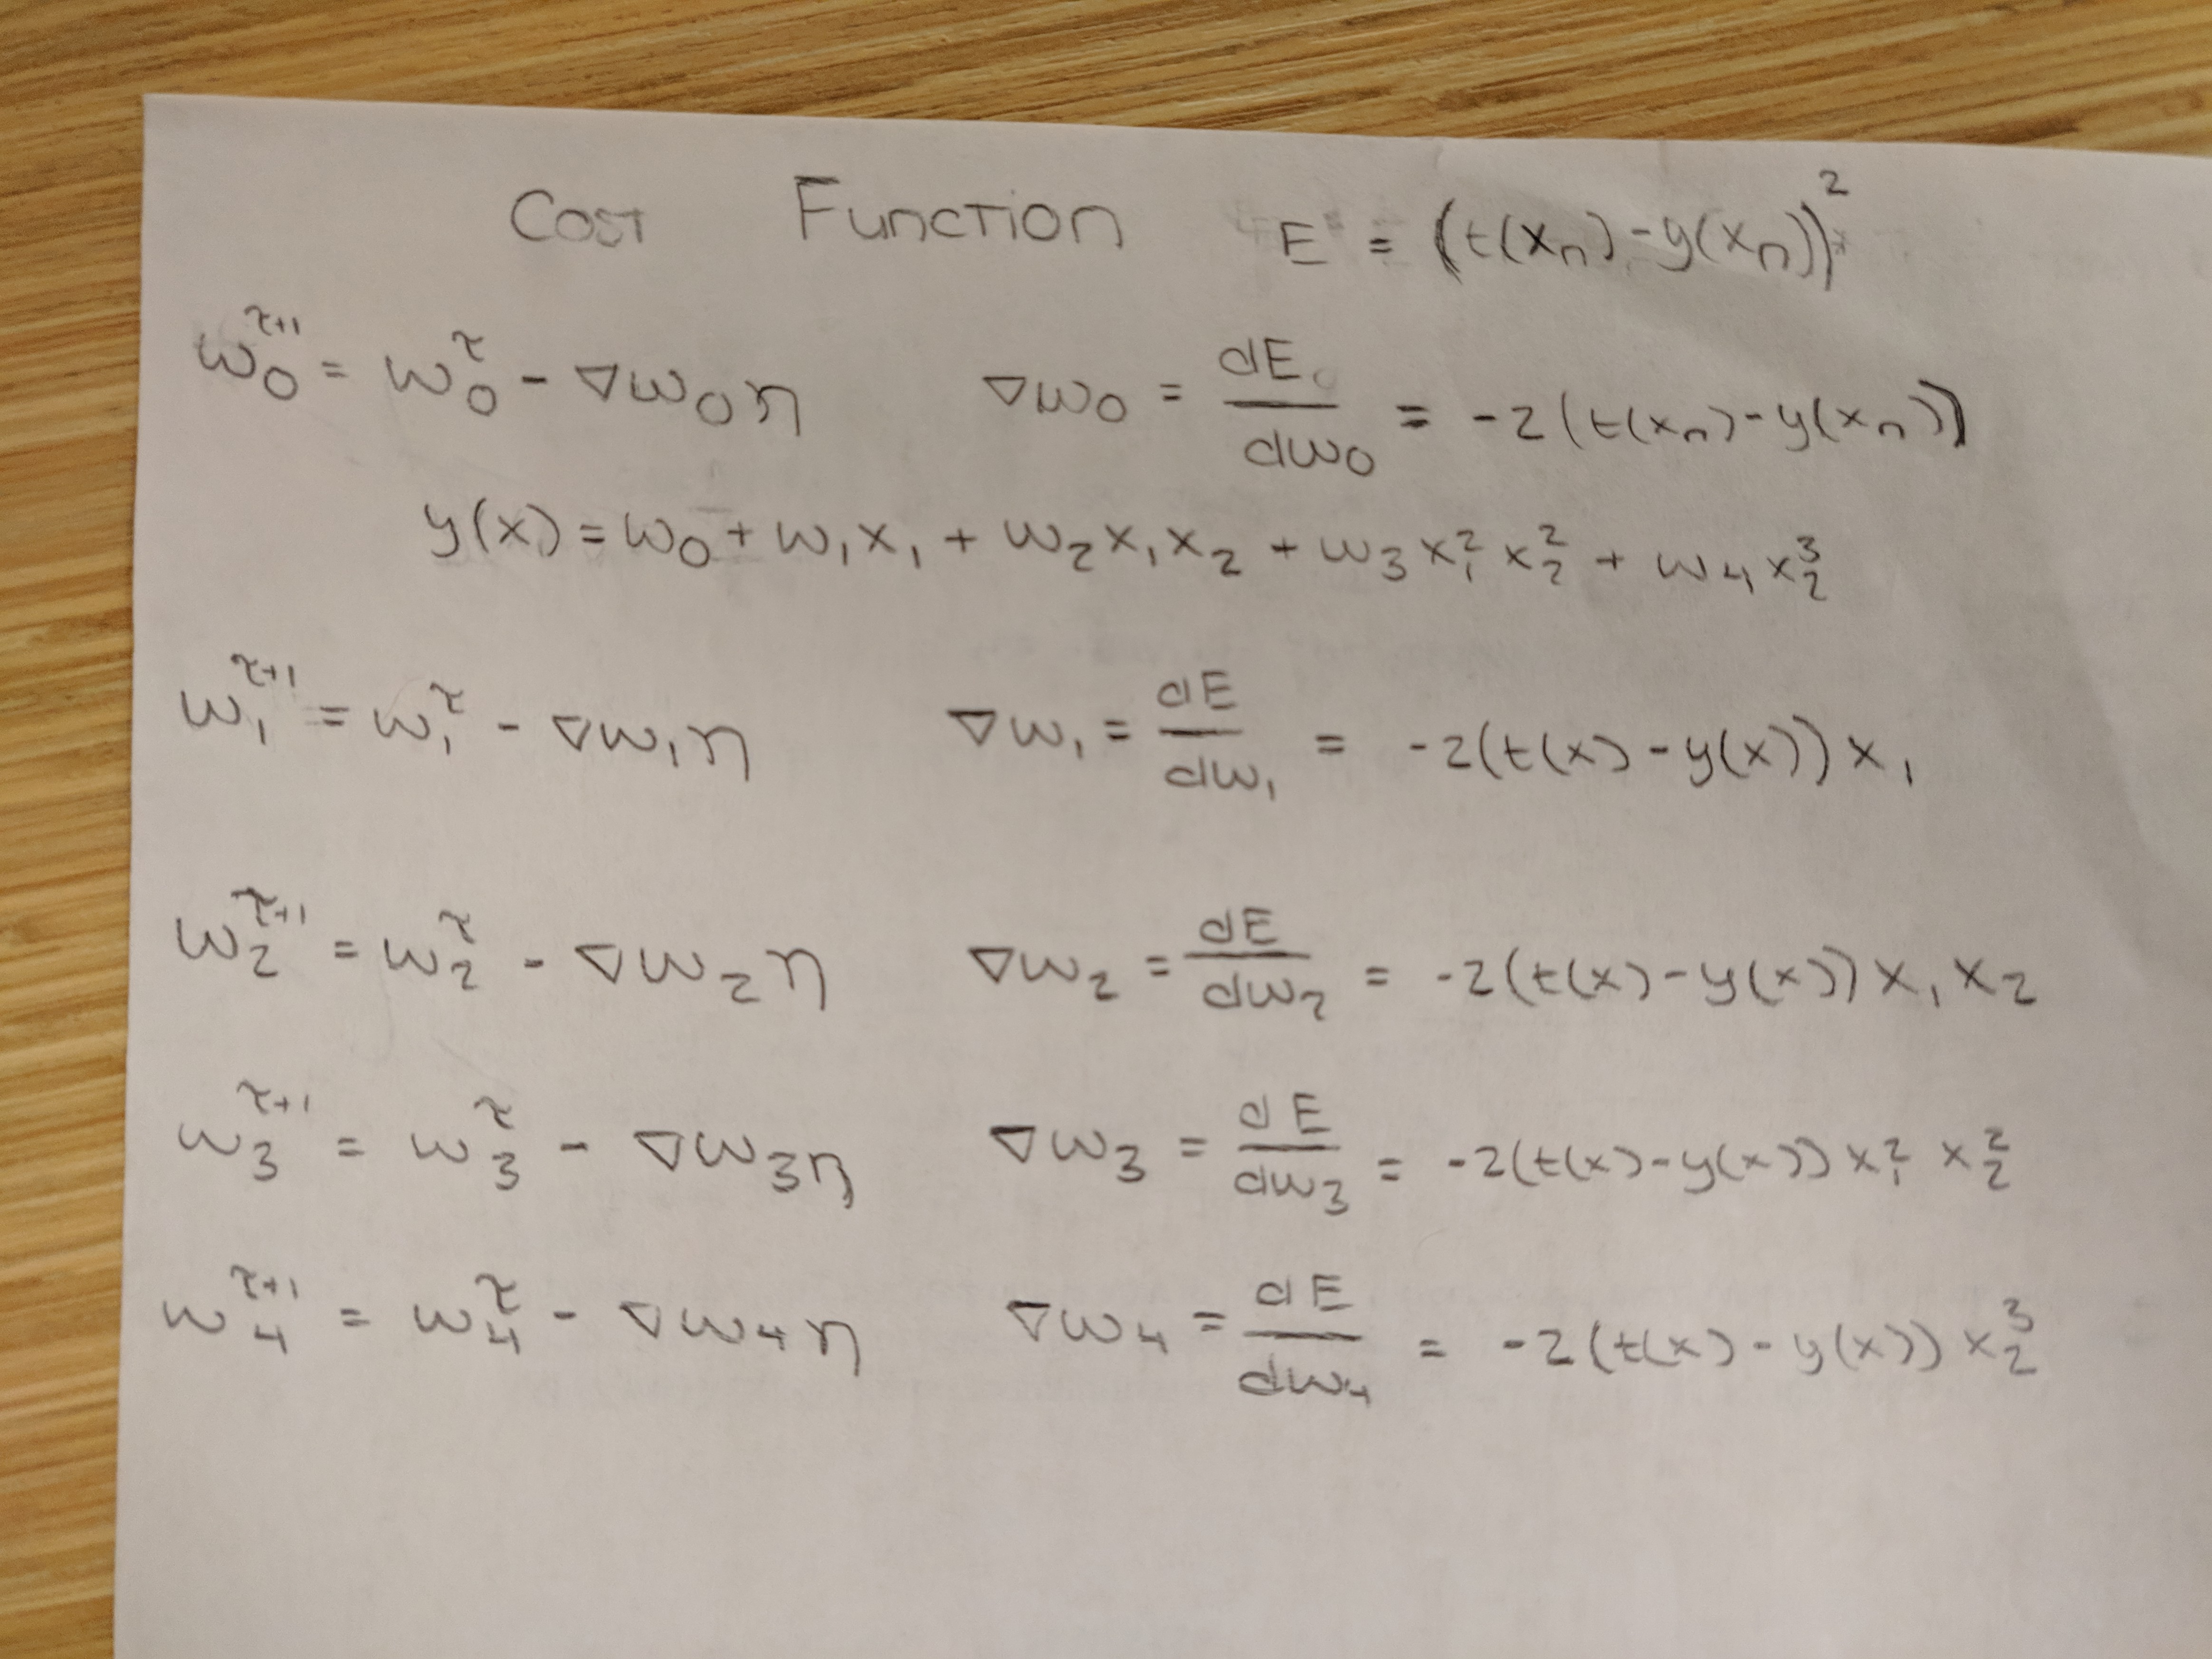 Cost Function E = (t(xₙ) - y(xₙ))²
w₀^τ+1 = w₀^τ - ∇w₀η ∇w₀ = dE/dw₀ = -2(t(xₙ) - y(xₙ))
y(x) = w₀ + w₁x₁ + w₂x₁x₂ + w₃x₁²x₂² + w₄x₂³
w₁^τ+1 = w₁^τ - ∇w₁η ∇w₁ = dE/dw₁ = -2(t(x) - y(x))x₁
w₂^τ+1 = w₂^τ - ∇w₂η ∇w₂ = dE/dw₂ = -2(t(x) - y(x))x₁x₂
w₃^τ+1 = w₃^τ - ∇w₃η ∇w₃ = dE/dw₃ = -2(t(x) - y(x))x₁² x₂²
w₄^τ+1 = w₄^τ - ∇w₄η ∇w₄ = dE/dw₄ = -2(t(x) - y(x))x₂³